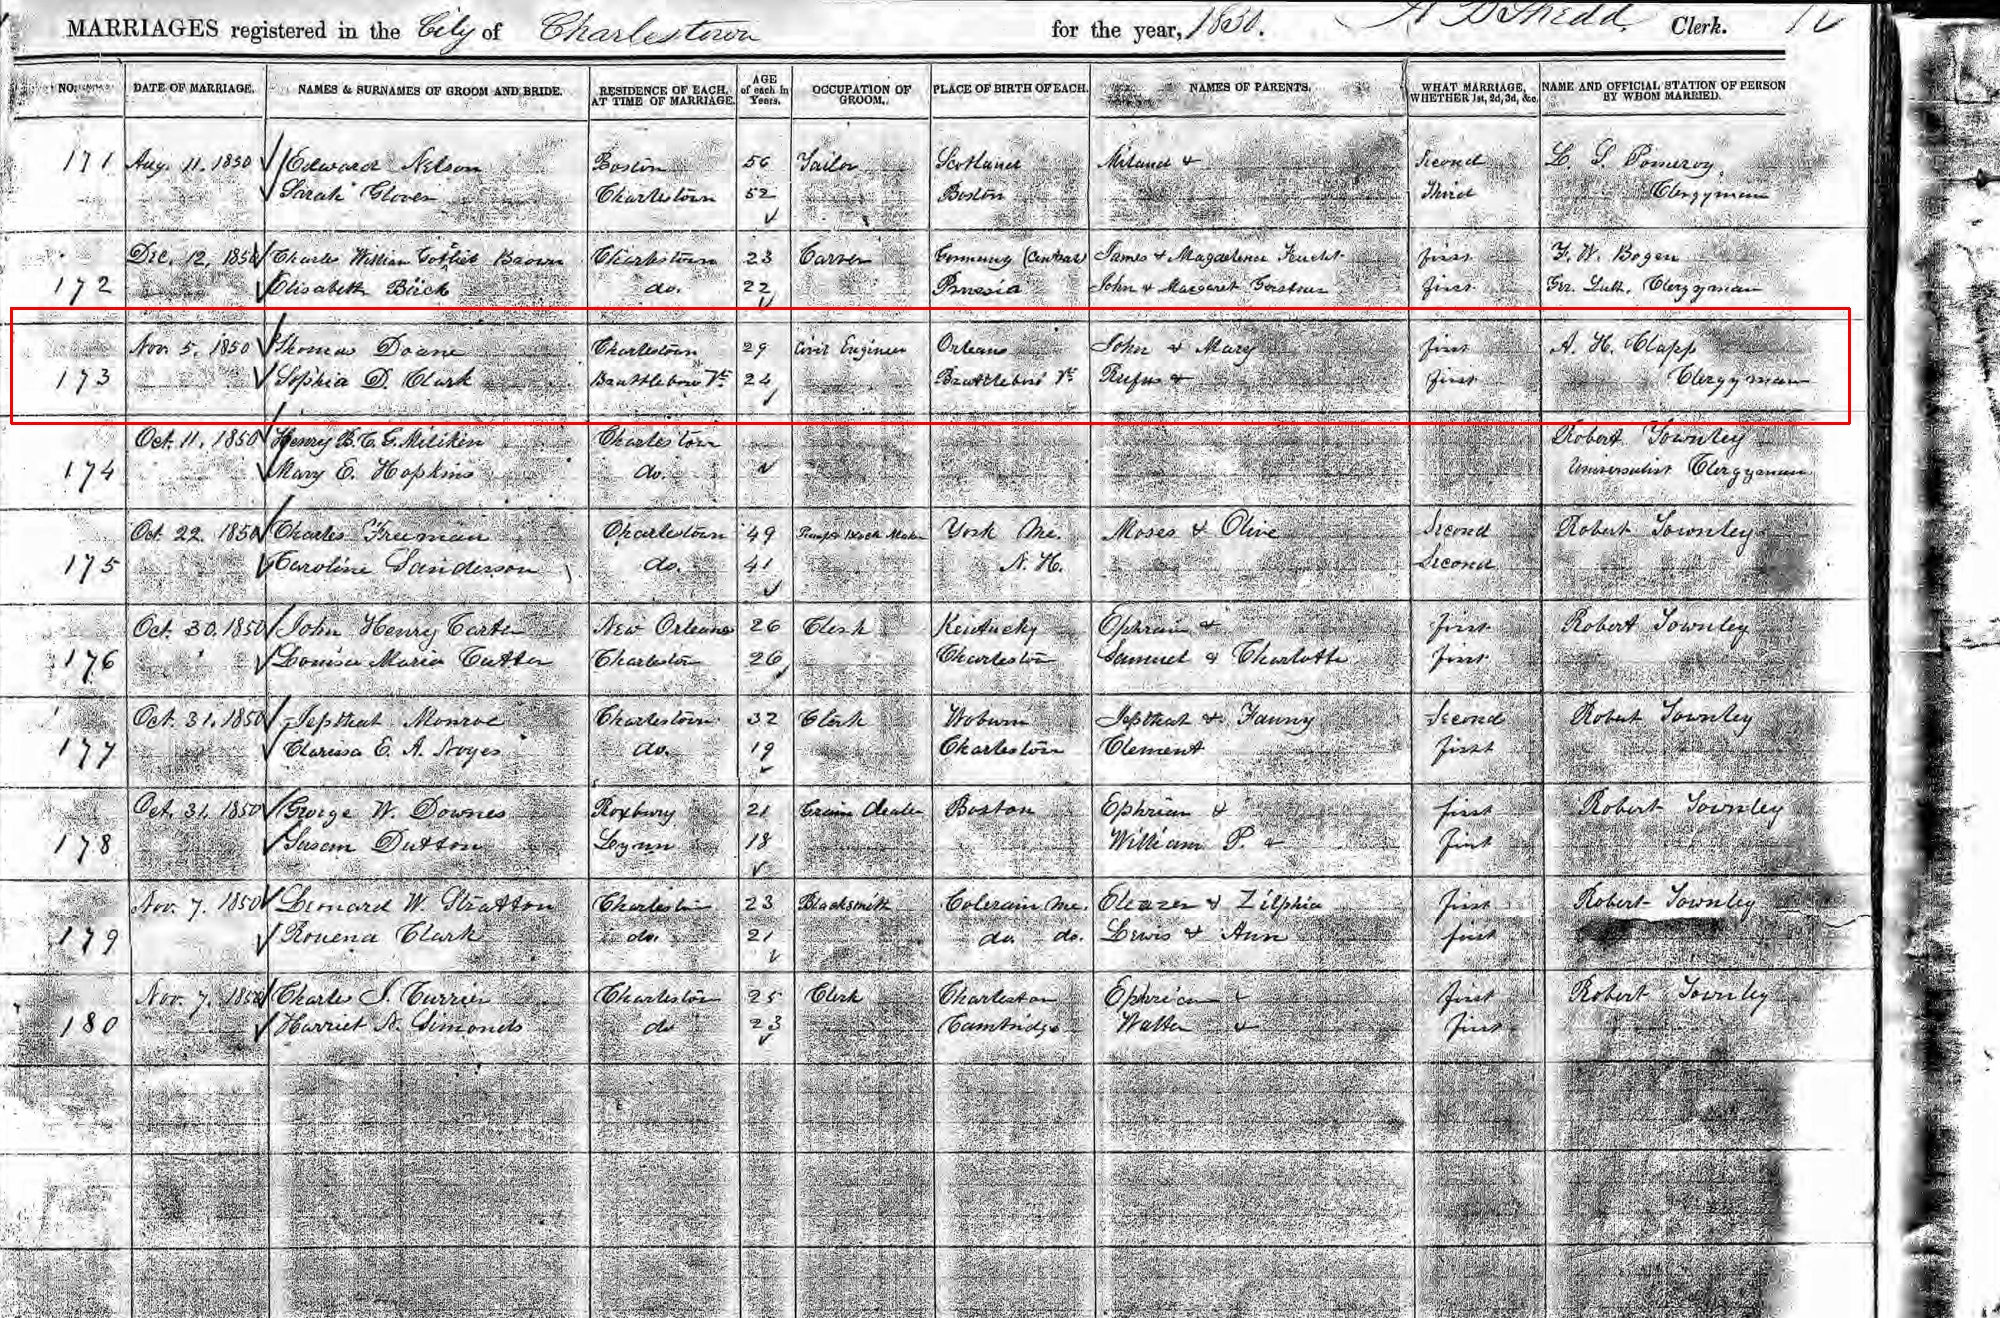 MARRIAGES registered in the City of Charlestown for the year, 1850. Clerk.
NO. DATE OF MARRIAGE. NAMES & SURNAMES OF GROOM AND BRIDE. RESIDENCE OF EACH, AT TIME OF MARRIAGE. AGE of each in Years. OCCUPATION OF GROOM. PLACE OF BIRTH OF EACH. NAMES OF PARENTS. WHAT MARRIAGE, WHETHER 1st, 2d, 3d, &c. NAME AND OFFICIAL STATION OF PERSON BY WHOM MARRIED.
171 Aug. 11. 1850 Edward Nelson Boston 56 Tailor Scotland & Second Pomeroy
Sarah Glover Charlestown 52 Boston Third Clergyman
Dec. 12, 1850 Charles William Gotlieb Brown Charlestown 23 Carver Germany (Central) James & Magdelena first F. W. Bogen
172 Elisabeth Böck do. 22 Prussia John & Margaret first Ger. Luth. Clergyman
Nov. 5. 1850 Thomas Doane Charlestown 29 Civil Engineer Orleans John & Mary first A. H. Clapp
173 Sophia D. Clark Brattleboro Vt. 24 Brattleboro Vt. Rufus & first Clergyman
Oct. 11. 1850 Henry B. C. G. Miliken Charlestown Robert Townley
174 Mary E. Hopkins do. Universalist Clergyman
Oct. 22. 1850 Charles Freeman Charlestown 49 Pump & Block Maker York Me. Moses & Olive Second Robert Townley
175 Caroline Sanderson do. 41 N. H. Second
Oct. 30. 1850 John Henry Carter New Orleans 26 Clerk Kentucky Ephraim & first Robert Townley
176 Louisa Maria Cutter Charlestown 26 Charlestown Samuel & Charlotte first
Oct. 31. 1850 Jepthat Monroe Charlestown 32 Clerk Woburn Jepthat & Fanny Second Robert Townley
177 Clarissa E. A. Noyes do. 19 Charlestown Clement first
Oct. 31. 1850 George W. Downes Roxbury 21 Grain dealer Boston Ephriam & first Robert Townley
178 Susan Dutton Lynn 18 William P. & first
Nov. 7. 1850 Leonard W. Stratton Charlestown 23 Blacksmith Colerain Me. Eleazer & Zilphia first Robert Townley
179 Rouena Clark do. 21 do. do. Lewis & Ann first
Nov. 7. 1850 Charles Currier Charlestown 25 Clerk Charlestown Ephriam & first Robert Townley
180 Harriet A. Simonds do 23 Cambridge Walter & first